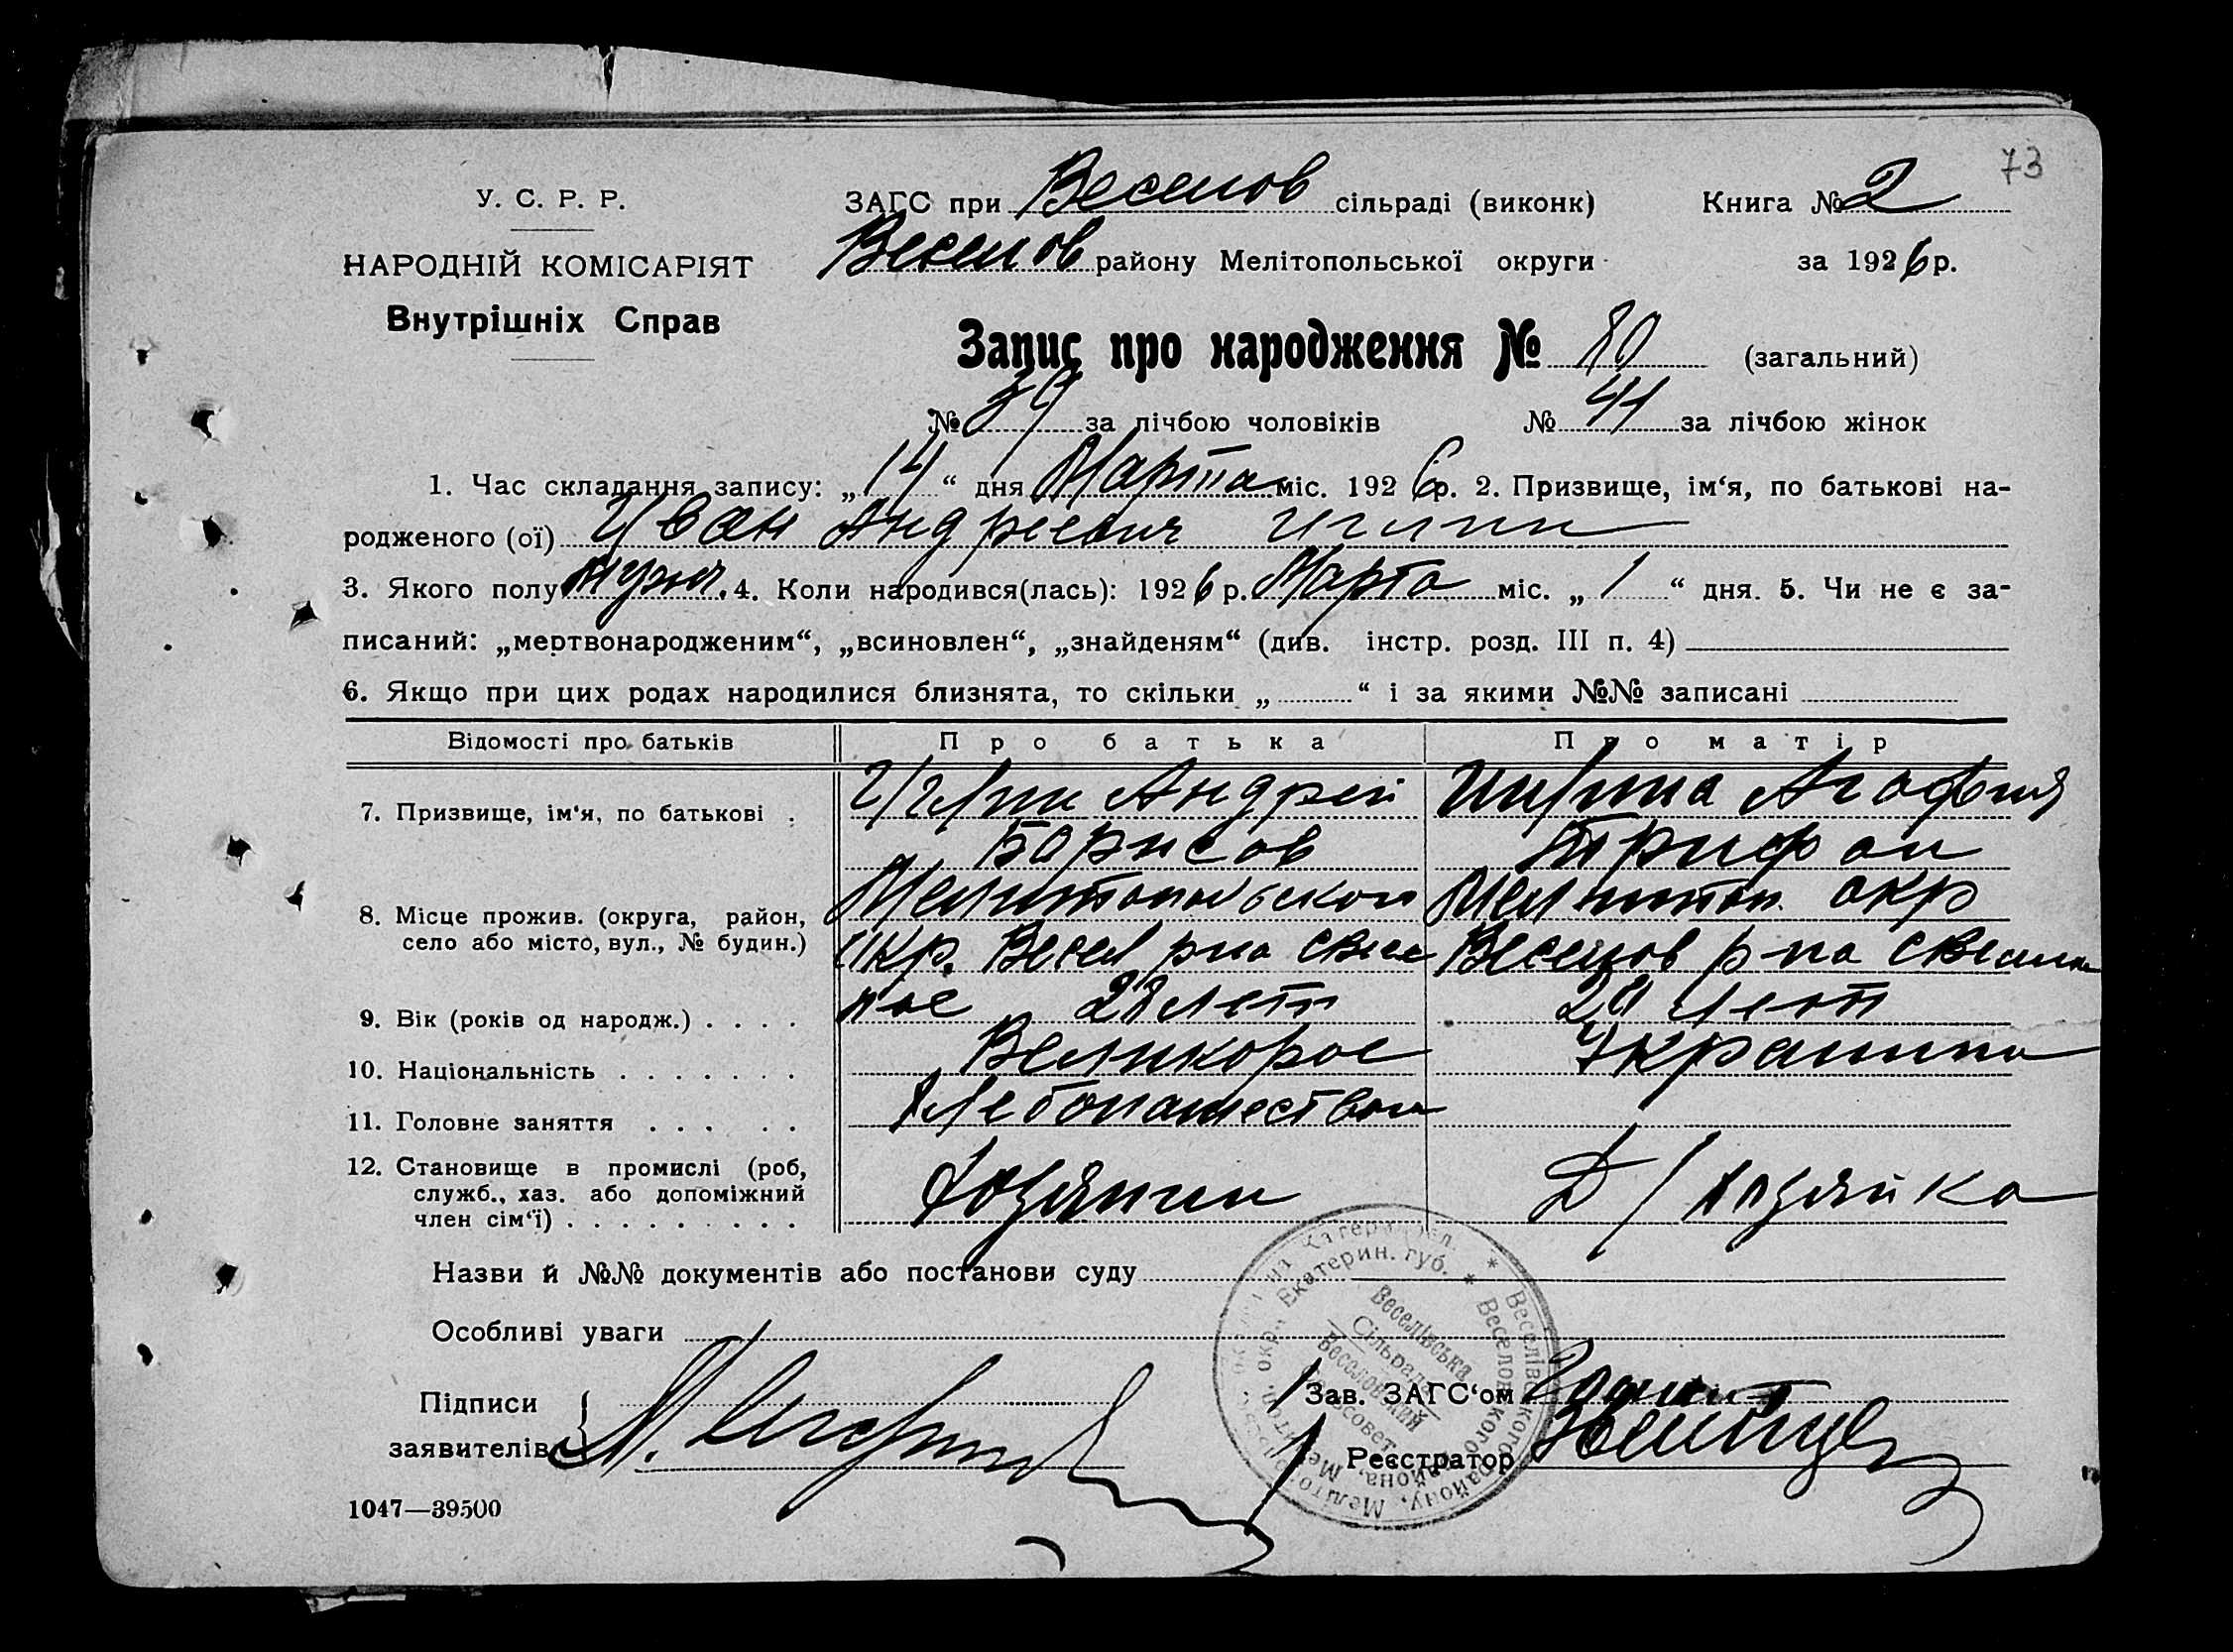 73
У. С. Р. Р.
НАРОДНІЙ КОМІСАРІЯТ
Внутрішніх Справ
ЗАГС при Веселов сільраді (виконк) Книга № 2
Веселов району Мелітопольської округи за 1926 р.
Запис про народження № 80 (загальний)
№ 39 за лічбою чоловіків № 41 за лічбою жінок
1. Час складання запису: „14“ дня Марта міс. 1926 р. 2. Призвище, ім‘я, по батькові на-
родженого (ої) Иван Андреевич
3. Якого полу муж. 4. Коли народився(лась): 1926 р. Марта міс. „1“ дня. 5. Чи не є за-
писаний: „мертвонародженим“, „всиновлен“, „знайденям“ (див. інстр. розд. III п. 4)
6. Якщо при цих родах народилися близнята, то скільки „ “ і за якими №№ записані
Відомості про батьків Про батька Про матір
7. Призвище, ім‘я, по батькові . Андрей Агафия
Борисов Трифон
8. Місце прожив. (округа, район, село або місто, вул., № будин.) Мелитопольской Мелитоп. окр
Окр. Весел рна с Весе Веселов р-на с Весело
9. Вік (років од народж.) . . . . лое 28 лет лет
10. Національність . . . . . . . Великорос Украинка
11. Головне заняття . . . . . Хлебопашеством
12. Становище в промислі (роб, служб., хаз. або допоміжний член сім‘ї) . . . . . . . . . Хозяин Д/хозяйка
Назви й №№ документів або постанови суду
Особливі уваги
Підписи
заявителів
Зав. ЗАГС‘ом
Реєстратор
Веселівська
Сільрада
Веселовский
Екатерин. губ.
1047—39500